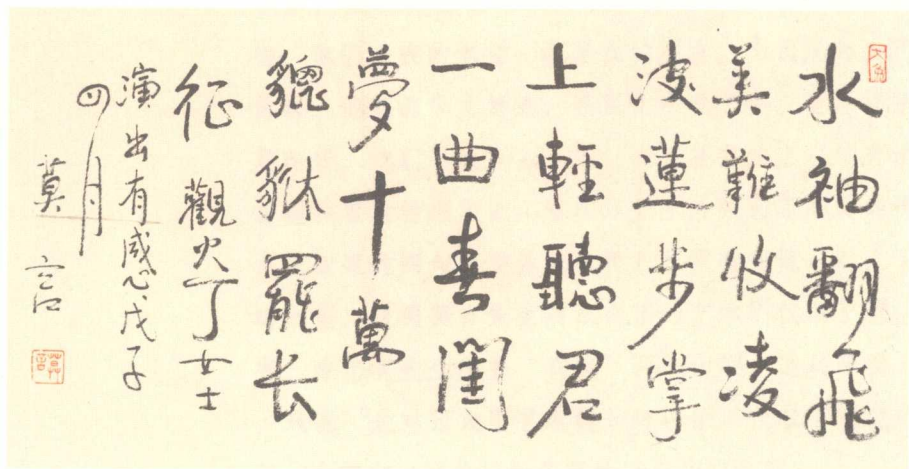 水袖翻飛
美難收凌
波蓮步掌
上輕聽君
一曲春閨
夢十萬
貔貅罷长
征 觀火丁女士
演出有感戊子
四月
莫言